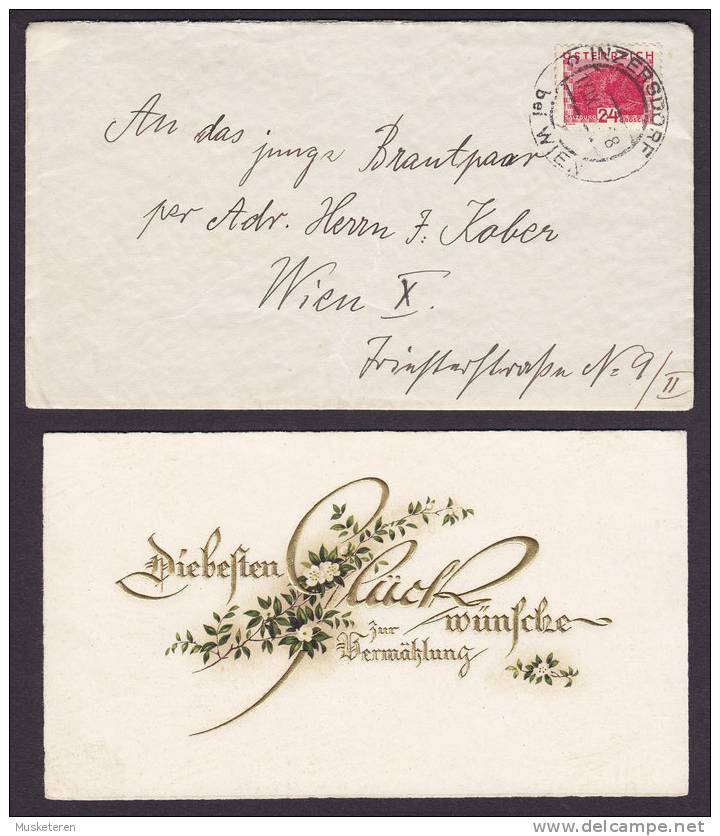 ÖSTERREICH
SALZBURG 24 GROSCHEN
INZERSDORF
bei WIEN
8
An das junge Brautpaar
per Adr. Herrn F. Kober
Wien X.
Triesterstraße No 9/II
Die besten Glückwünsche
zur
Vermählung
Musketeren
delcampe.net